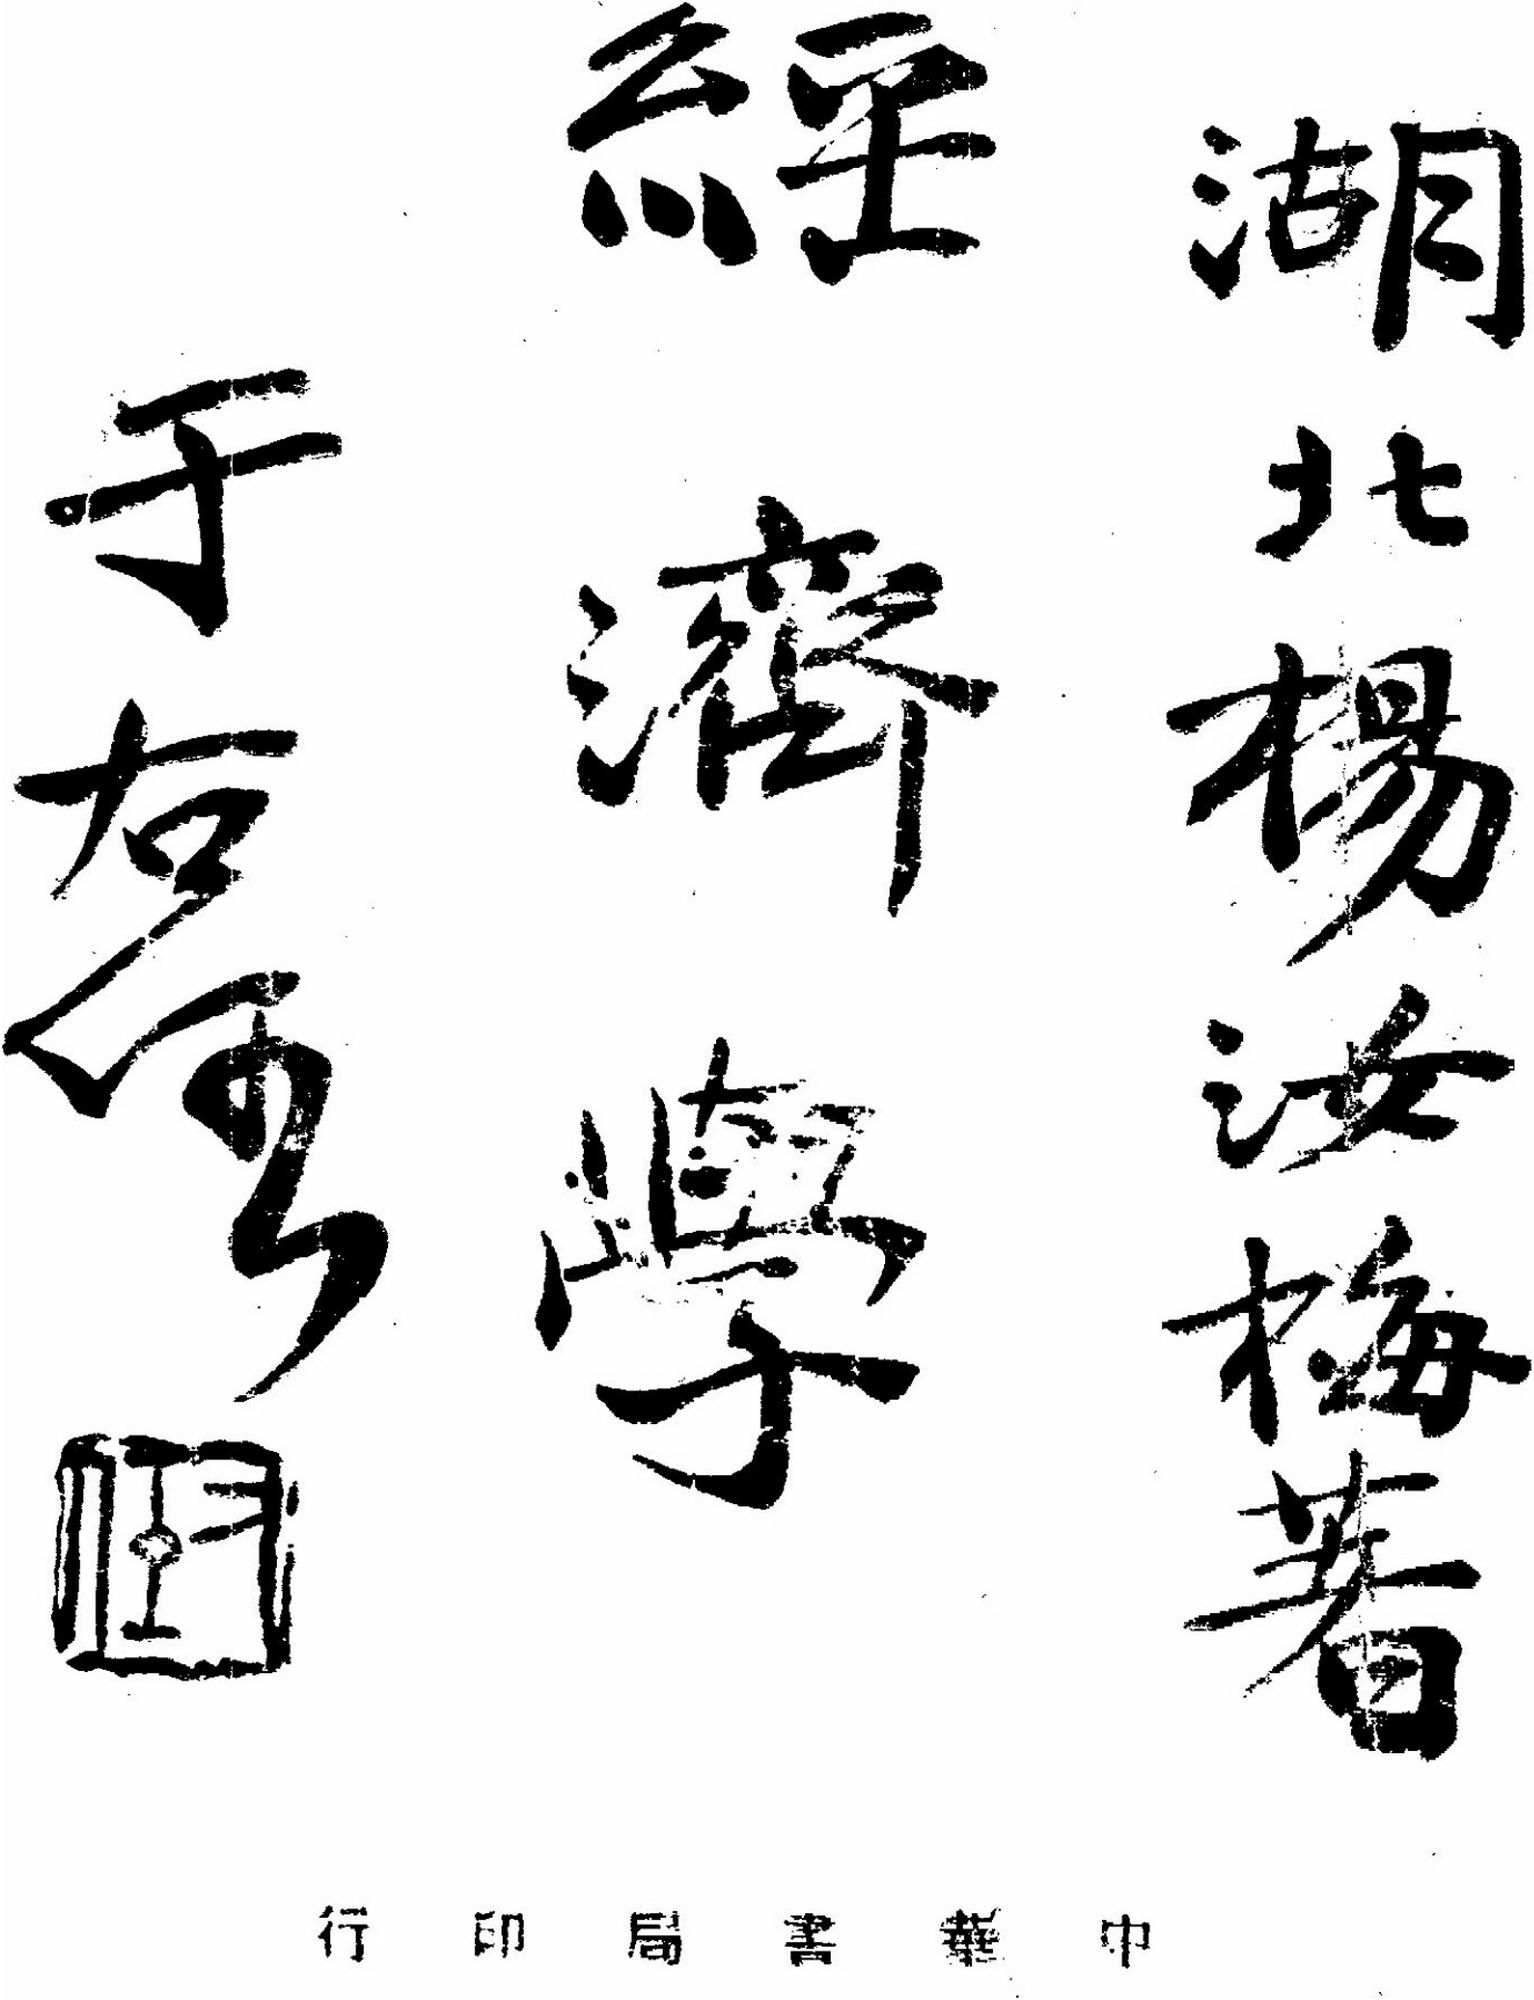 湖北楊汝梅著
經濟學
于右任
中華書局印行